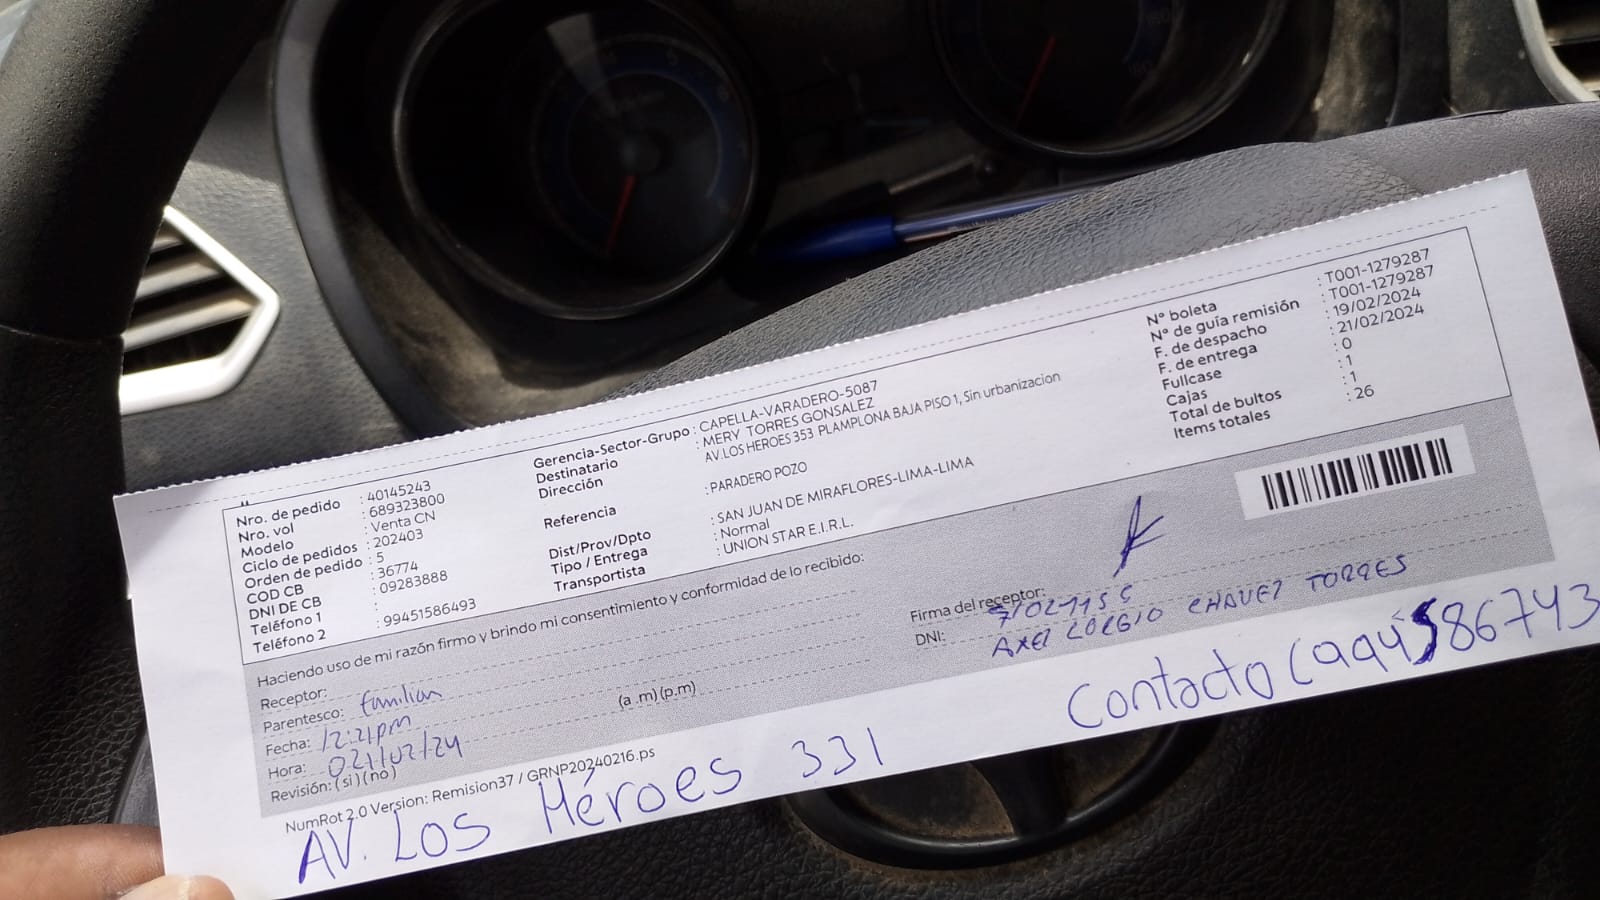 Nro. de pedido : 40145243
Nro. vol : 689323800
Modelo : Venta CN
Ciclo de pedidos : 202403
Orden de pedido : 5
COD CB : 36774
DNI DE CB : 09283888
Teléfono 1 :
Teléfono 2 : 99451586493
Gerencia-Sector-Grupo : CAPELLA-VARADERO-5087
Destinatario : MERY TORRES GONSALEZ
Dirección AV.LOS HEROES 353 PLAMPLONA BAJA PISO 1, Sin urbanizacion
Referencia : PARADERO POZO
Dist/Prov/Dpto : SAN JUAN DE MIRAFLORES-LIMA-LIMA
Tipo / Entrega : Normal
Transportista : UNION STAR E.I.R.L.
N° boleta : T001-1279287
N° de guía remisión : T001-1279287
F. de despacho : 19/02/2024
F. de entrega : 21/02/2024
Fullcase : 0
Cajas : 1
Total de bultos : 1
Items totales : 26
Haciendo uso de mi razón firmo y brindo mi consentimiento y conformidad de lo recibido:
Receptor:
Parentesco: familiar
Fecha: 12:21pm
Hora: 021/02/24 (a .m) (p.m)
Revisión: ( si ) ( no )
Firma del receptor:
DNI:
CHAVEZ TORRES
NumRot 2.0 Version: Remision37 / GRNP20240216.ps
AV. Los Héroes 331
Contacto